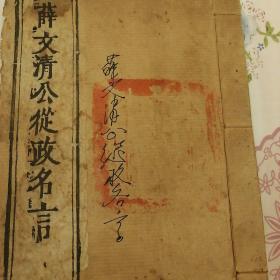 薛文清公從政名言
薛文清公從政名言